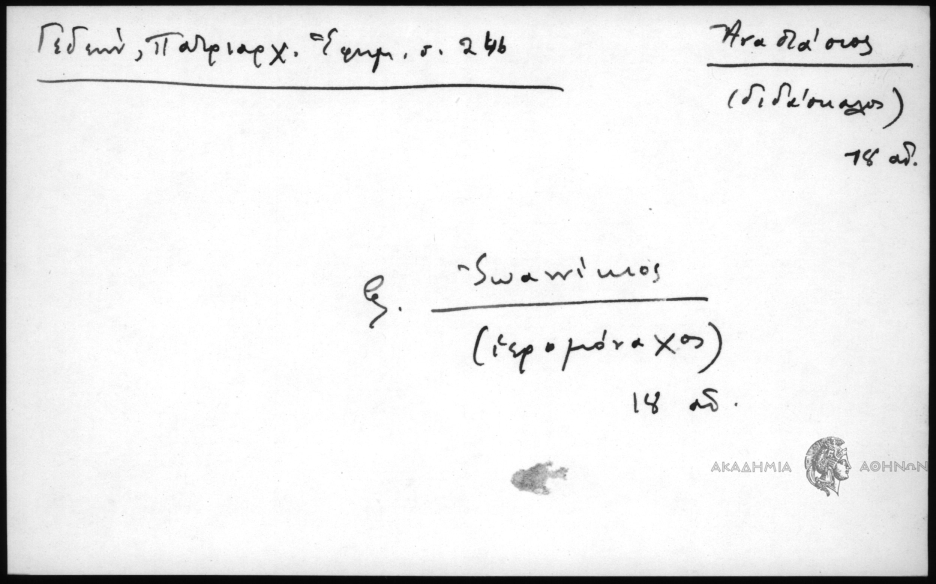 Γεδεών, Πατριαρχ. Ἐφημ. σ. 246
Ἀναστάσιος
(διδάσκαλος)
18 αἰ.
βλ. Ἰωαννίκιος
(ἱερομόναχος)
18 αἰ.
ΑΚΑΔΗΜΙΑ ΑΘΗΝΩΝ